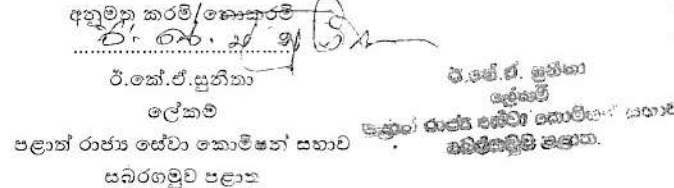 අනුමත කරමි/නොකරමි
ඊ.කේ.ඒ.සුනීතා
ලේකම්
පළාත් රාජ්‍ය සේවා කොමිෂන් සභාව
සබරගමුව පළාත
ඊ.කේ.ඒ. සුනීතා
ලේකම්
පළාත් රාජ්‍ය සේවා කොමිෂන් සභාව
සබරගමුව පළාත.